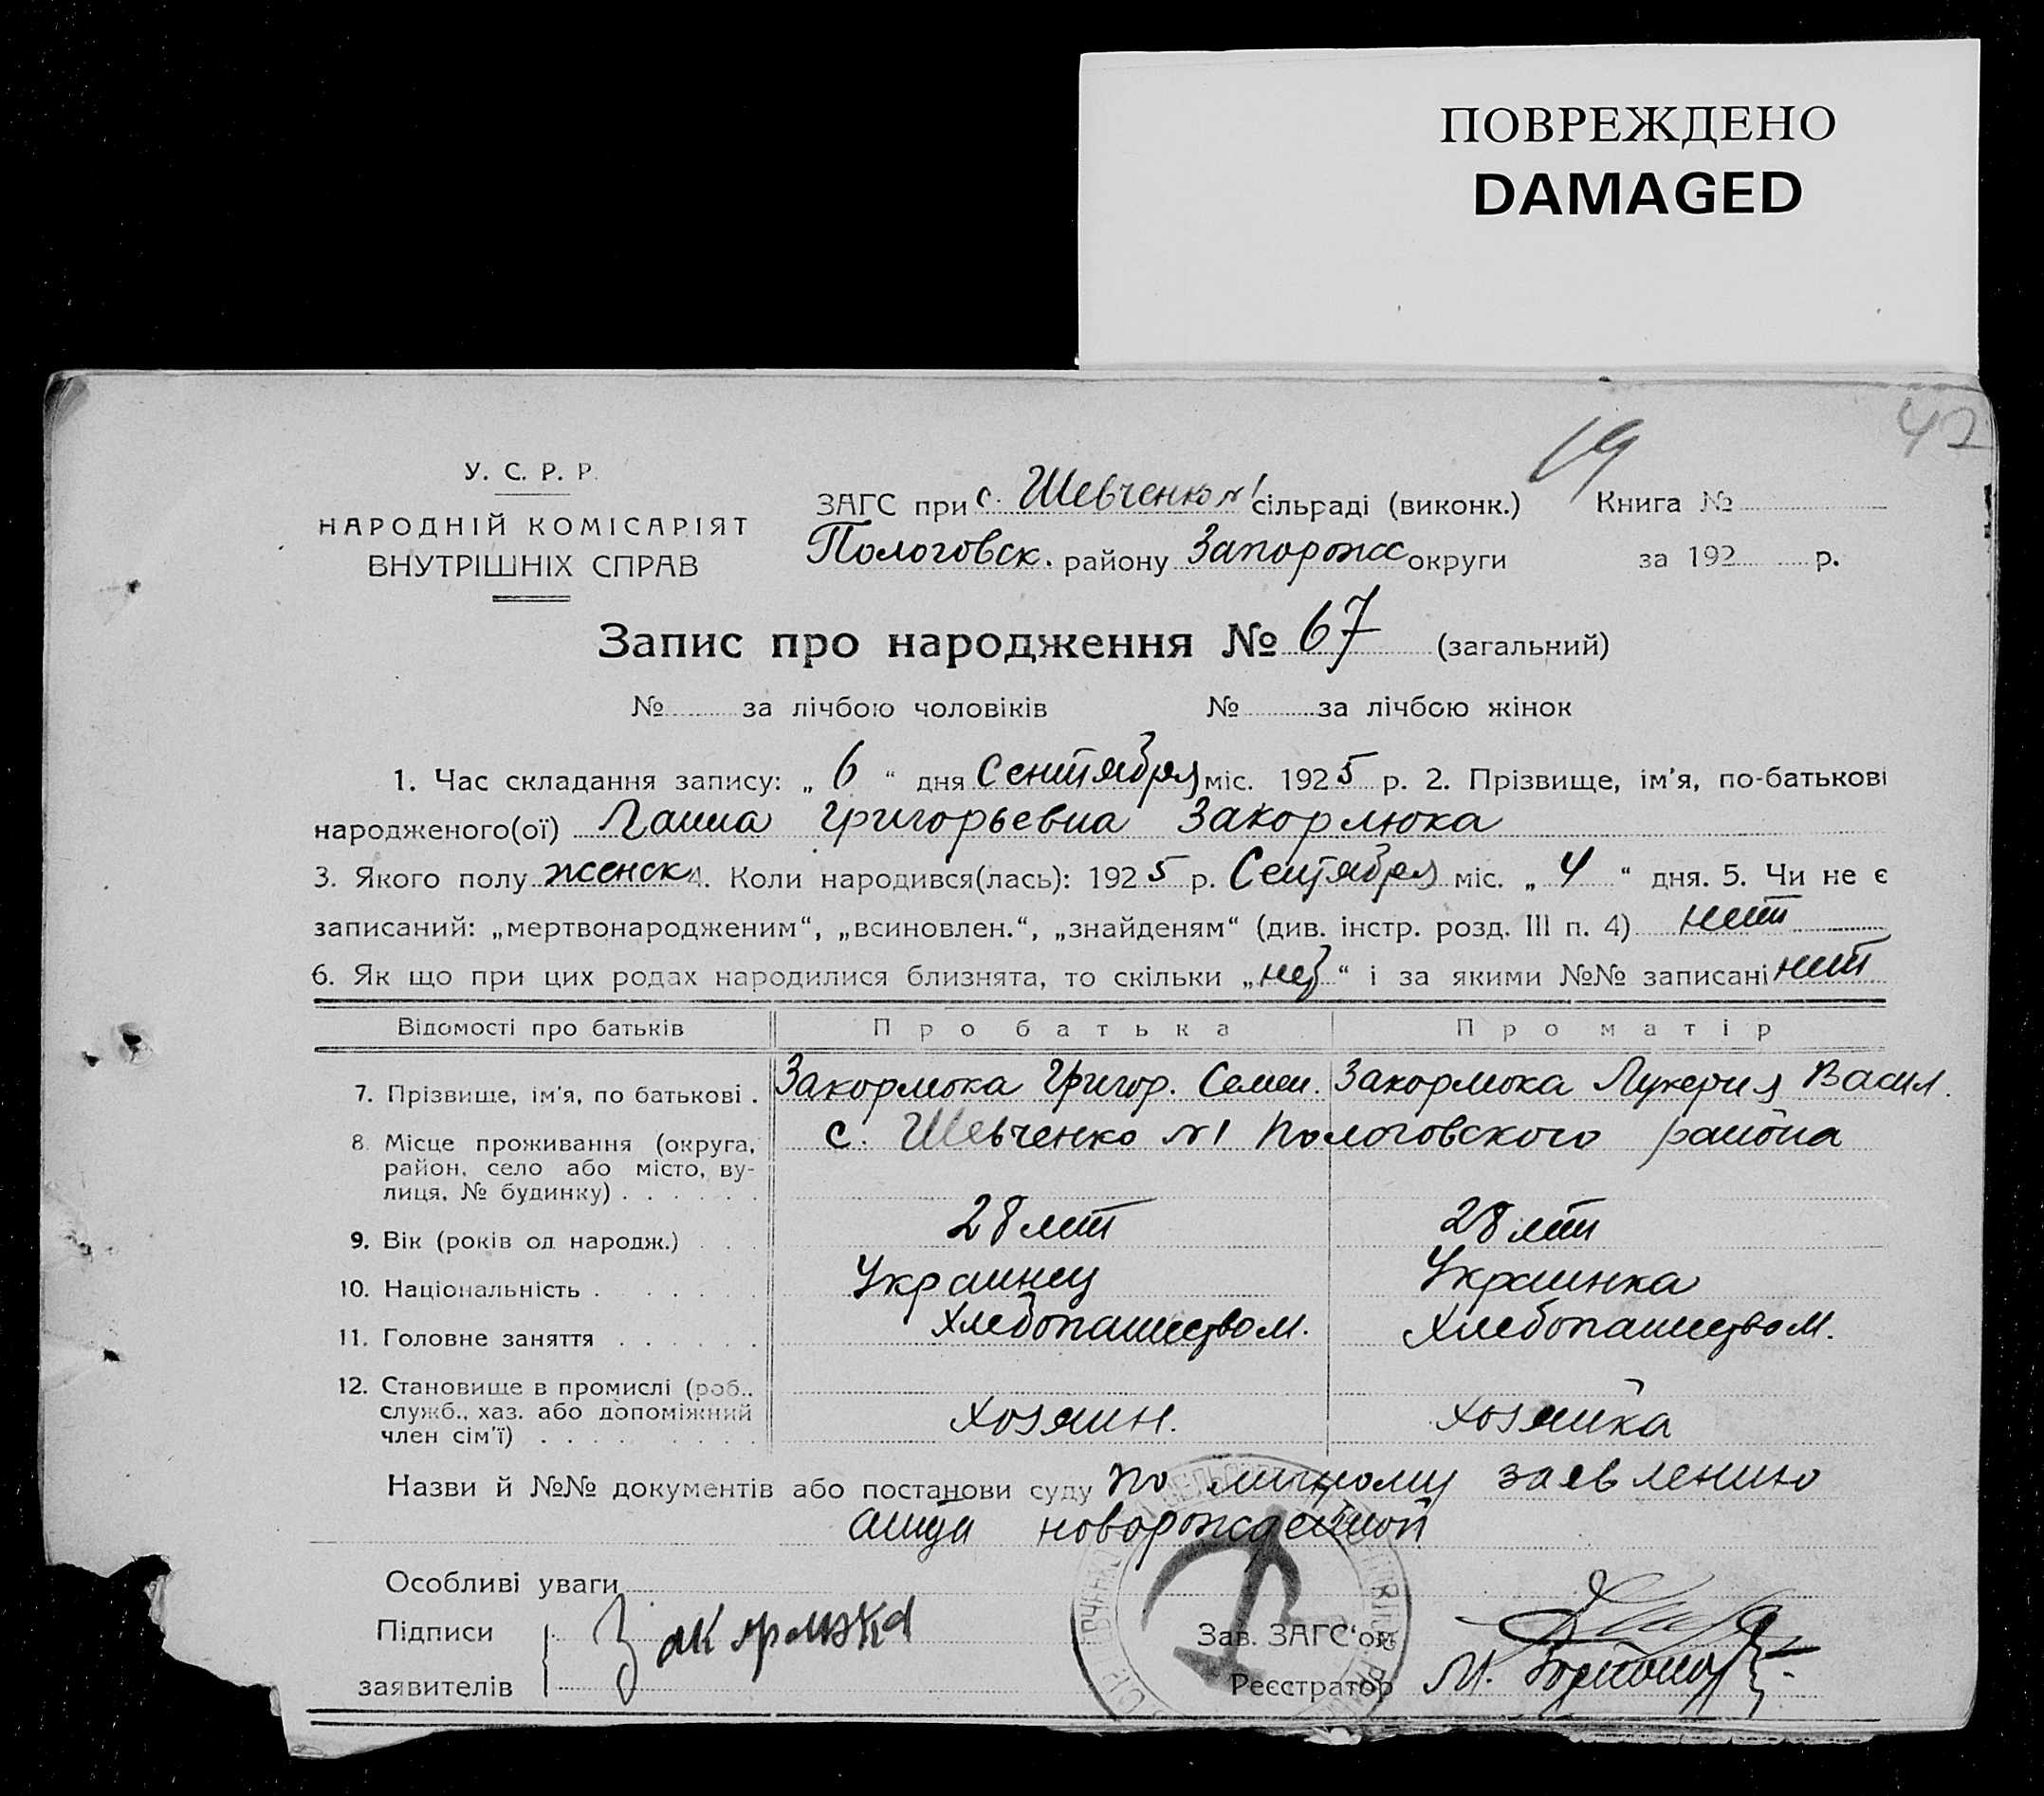 ПОВРЕЖДЕНО
DAMAGED
42
19
У. С. Р. Р.
НАРОДНІЙ КОМІСАРІЯТ
ВНУТРІШНІХ СПРАВ
ЗАГС при с. Шевченко №1 сільраді (виконк.) Книга №
Пологовск. району Запорожс округи за 192 р.
Запис про народження № 67 (загальний)
№ за лічбою чоловіків № за лічбою жінок
1. Час складання запису: „ 6 “ дня Сентября міс. 1925 р. 2. Прізвище, ім'я, по-батькові
народженого(ої) Ганна Григорьевна Закорлюка
3. Якого полу женск 4. Коли народився(лась): 1925 р. Сентября міс. „ 4 “ дня. 5. Чи не є
записаний: „мертвонародженим“, „всиновлен.“, „знайденям“ (див. інстр. розд. III п. 4) нет
6. Як що при цих родах народилися близнята, то скільки „нет“ і за якими №№ записані нет
Відомості про батьків Про батька Про матір
7. Прізвище, ім'я, по батькові . Закорлюка Григор. Семен. Закорлюка Лукерия Васил.
8. Місце проживання (округа, с. Шевченко №1 Пологовского района
район, село або місто, ву-
лиця, № будинку) . . . . . .
9. Вік (років од народж.) . . . 28 лет 28 лет
10. Національність . . . . . . Украинец Украинка
11. Головне заняття . . . . . . Хлебопашеством. Хлебопашеством.
12. Становище в промислі (роб.,
служб., хаз. або допоміжний хозяин. хозяйка
член сім'ї) . . . . . . . . .
Назви й №№ документів або постанови суду по личному заявлению
отца новорожденной
Особливі уваги
Підписи Закорлюка Зав. ЗАГС'ом
заявителів Реєстратор М.